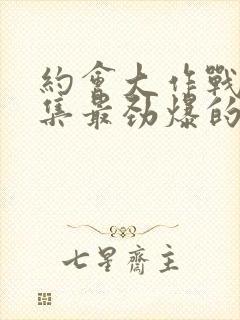 約會大作戰
集最劲爆的
七星齋主